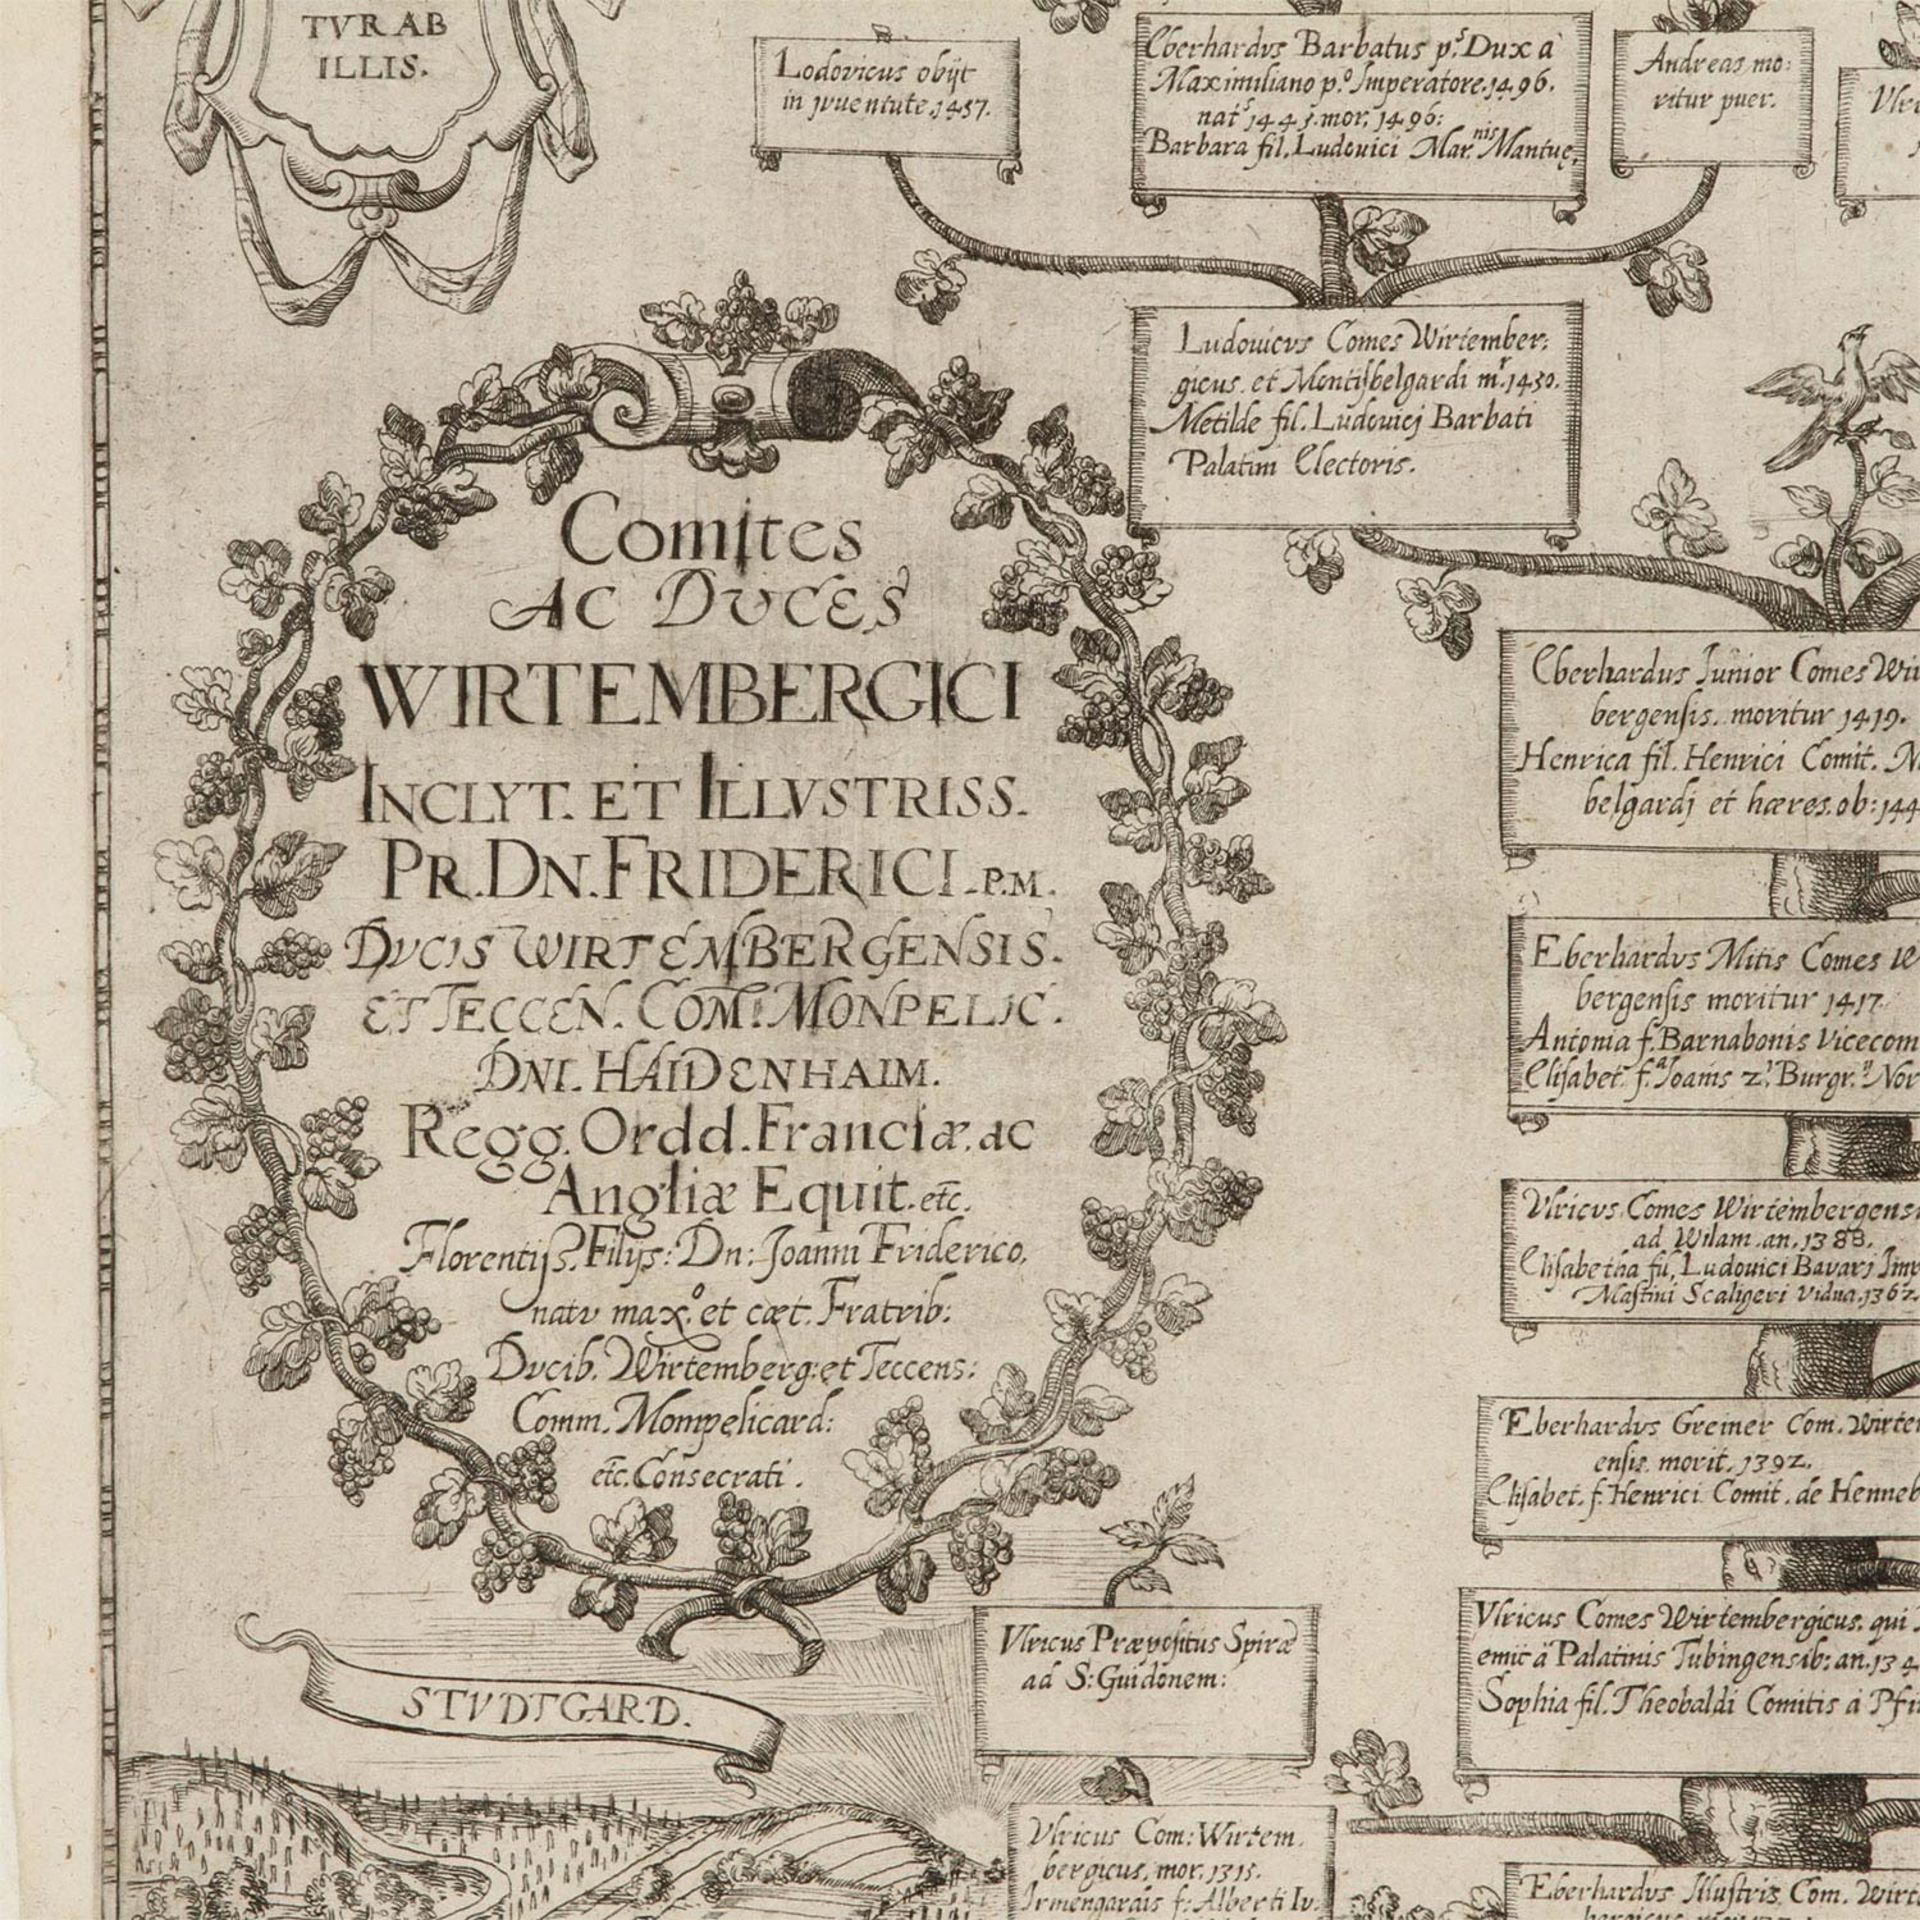 TVR AB
ILLIS.
Lodovicus obijt
in iuuentute.1457.
Eberhardvs Barbatus p.s Dux a
Maximiliano p.o Imperatore.1496.
nat.s 1445.mor. 1496:
Barbara fil. Ludouici Mar.nis Mantuę.
Andreas mo:
ritur puer.
Vlri
Ludouicvs Comes Wirtember:
gicus. et Montisbelgardi m.r 1450.
Metilde fil. Ludouicj Barbati
Palatini Electoris.
Comites
AC DVCES
WIRTEMBERGICI
INCLYT. ET ILLVSTRISS.
PR. DN. FRIDERICI. P.M.
DVCIS WIRTEMBERGENSIS.
ET TECCEN. COM: MONPELIC.
DNI. HAIDENHAIM.
Regg. Ordd. Franciæ. ac
Angliæ Equit. etc.
Florentiss. Filijs: Dn: Joanni Friderico,
natv max.o et cæt. Fratrib:
Dvcib. Wirtemberg: et Teccens:
Comm. Monpelicard:
etc. Consecrati.
Eberhardus Iunior Comes Wir
bergensis. moritur 1419.
Henrica fil. Henrici Comit. M
belgardj et hæres. ob: 144
Eberhardvs Mitis Comes W
bergensis moritur 1417.
Antonia f. Barnabonis Vicecom
Elisabet. f.a Joanis 2.i Burgr.ij Nor
Vlricvs Comes Wirtembergensi
ad Wilam. an. 1388.
Elisabetha fil, Ludouici Bavarj Imp
Mastini Scaligeri vidua.1362.
Eberhardvs Greiner Com. Wirte
ensis. morit. 1392.
Elisabet. f. Henrici Comit. de Henneb
Vlricus Comes Wirtembergicus. qui
emit a Palatinis Tubingensib: an. 134
Sophia fil. Theobaldi Comitis a Pfi
Vlricus Præpositus Spiræ
ad S: Guidonem:
STVDTGARD.
Vlricus Com: Wirtem.
bergicus. mor. 1315.
Irmengardis f: Alberti Iu:
Eberhardvs Illustris Com. Wirt
bergicus